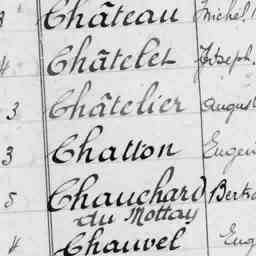 3 Château Michel
4 Châtelet Joseph.
3 Châtelier August
3 Chatton Eugen
5 Chauchard Bertr
du Mottay
4 Chauvel Eug